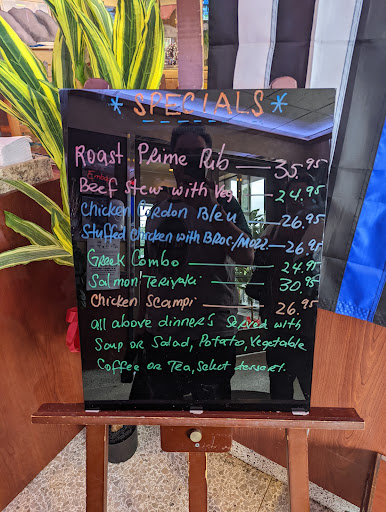 * SPECIALS *
Roast Prime Rib — 35.95
Beef Stew with Veg — 24.95
Chicken Cordon Bleu — 26.95
Stuffed Chicken with Broc/Mozz — 26.95
Greek Combo — 24.95
Salmon Teriyaki — 30.95
Chicken Scampi — 26.95
all above dinner's served with
Soup or Salad, Potato, Vegetable
Coffee or Tea, Select dessert.